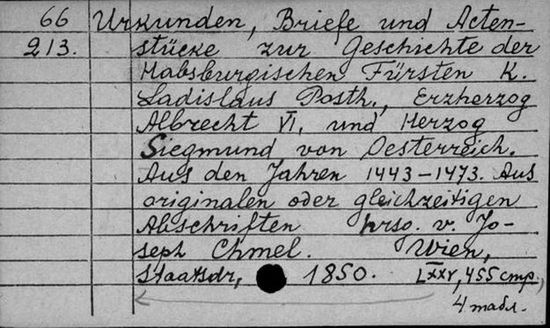 66 Urkunden, Briefe und Acten-
213. stücke zur Geschichte der
Habsburgischen Fürsten K.
Ladislaus Posth., Erzherzog
Albrecht VI. und Herzog
Siegmund von Oesterreich.
Aus den Jahren 1443-1473. Aus
originalen oder gleichzeitigen
Abschriften hrsg. v. Jo-
seph Chmel. Wien,
Staatsdr, 1850. LXXV, 455 стр,
4 табл.